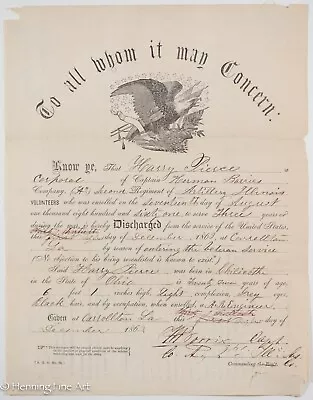 To all whom it may Concern:
Know ye, That Harry Pierce a
Corporal of Captain Herman Barries
Company, (A) Second Regiment of Artillery Illinois
VOLUNTEERS who was enrolled on the Seventeenth day of August
one thousand eight hundred and sixty one to serve Three years or
during the war, is hereby Discharged from the service of the United States,
this day of December, 1863, at Carrollton
La by reason of entering the Veteran Service
(No objection to his being re-enlisted is known to exist.)
Said Harry Pierce was born in Chilicothe
in the State of Ohio is Twenty six years of age,
6 feet 1 inches high, Light complexion, Grey eyes,
Black hair, and by occupation, when enrolled, a R R Engineer
Given at Carrollton La this day of
December 1863
Capt
Commanding the
© Henning Fine Art